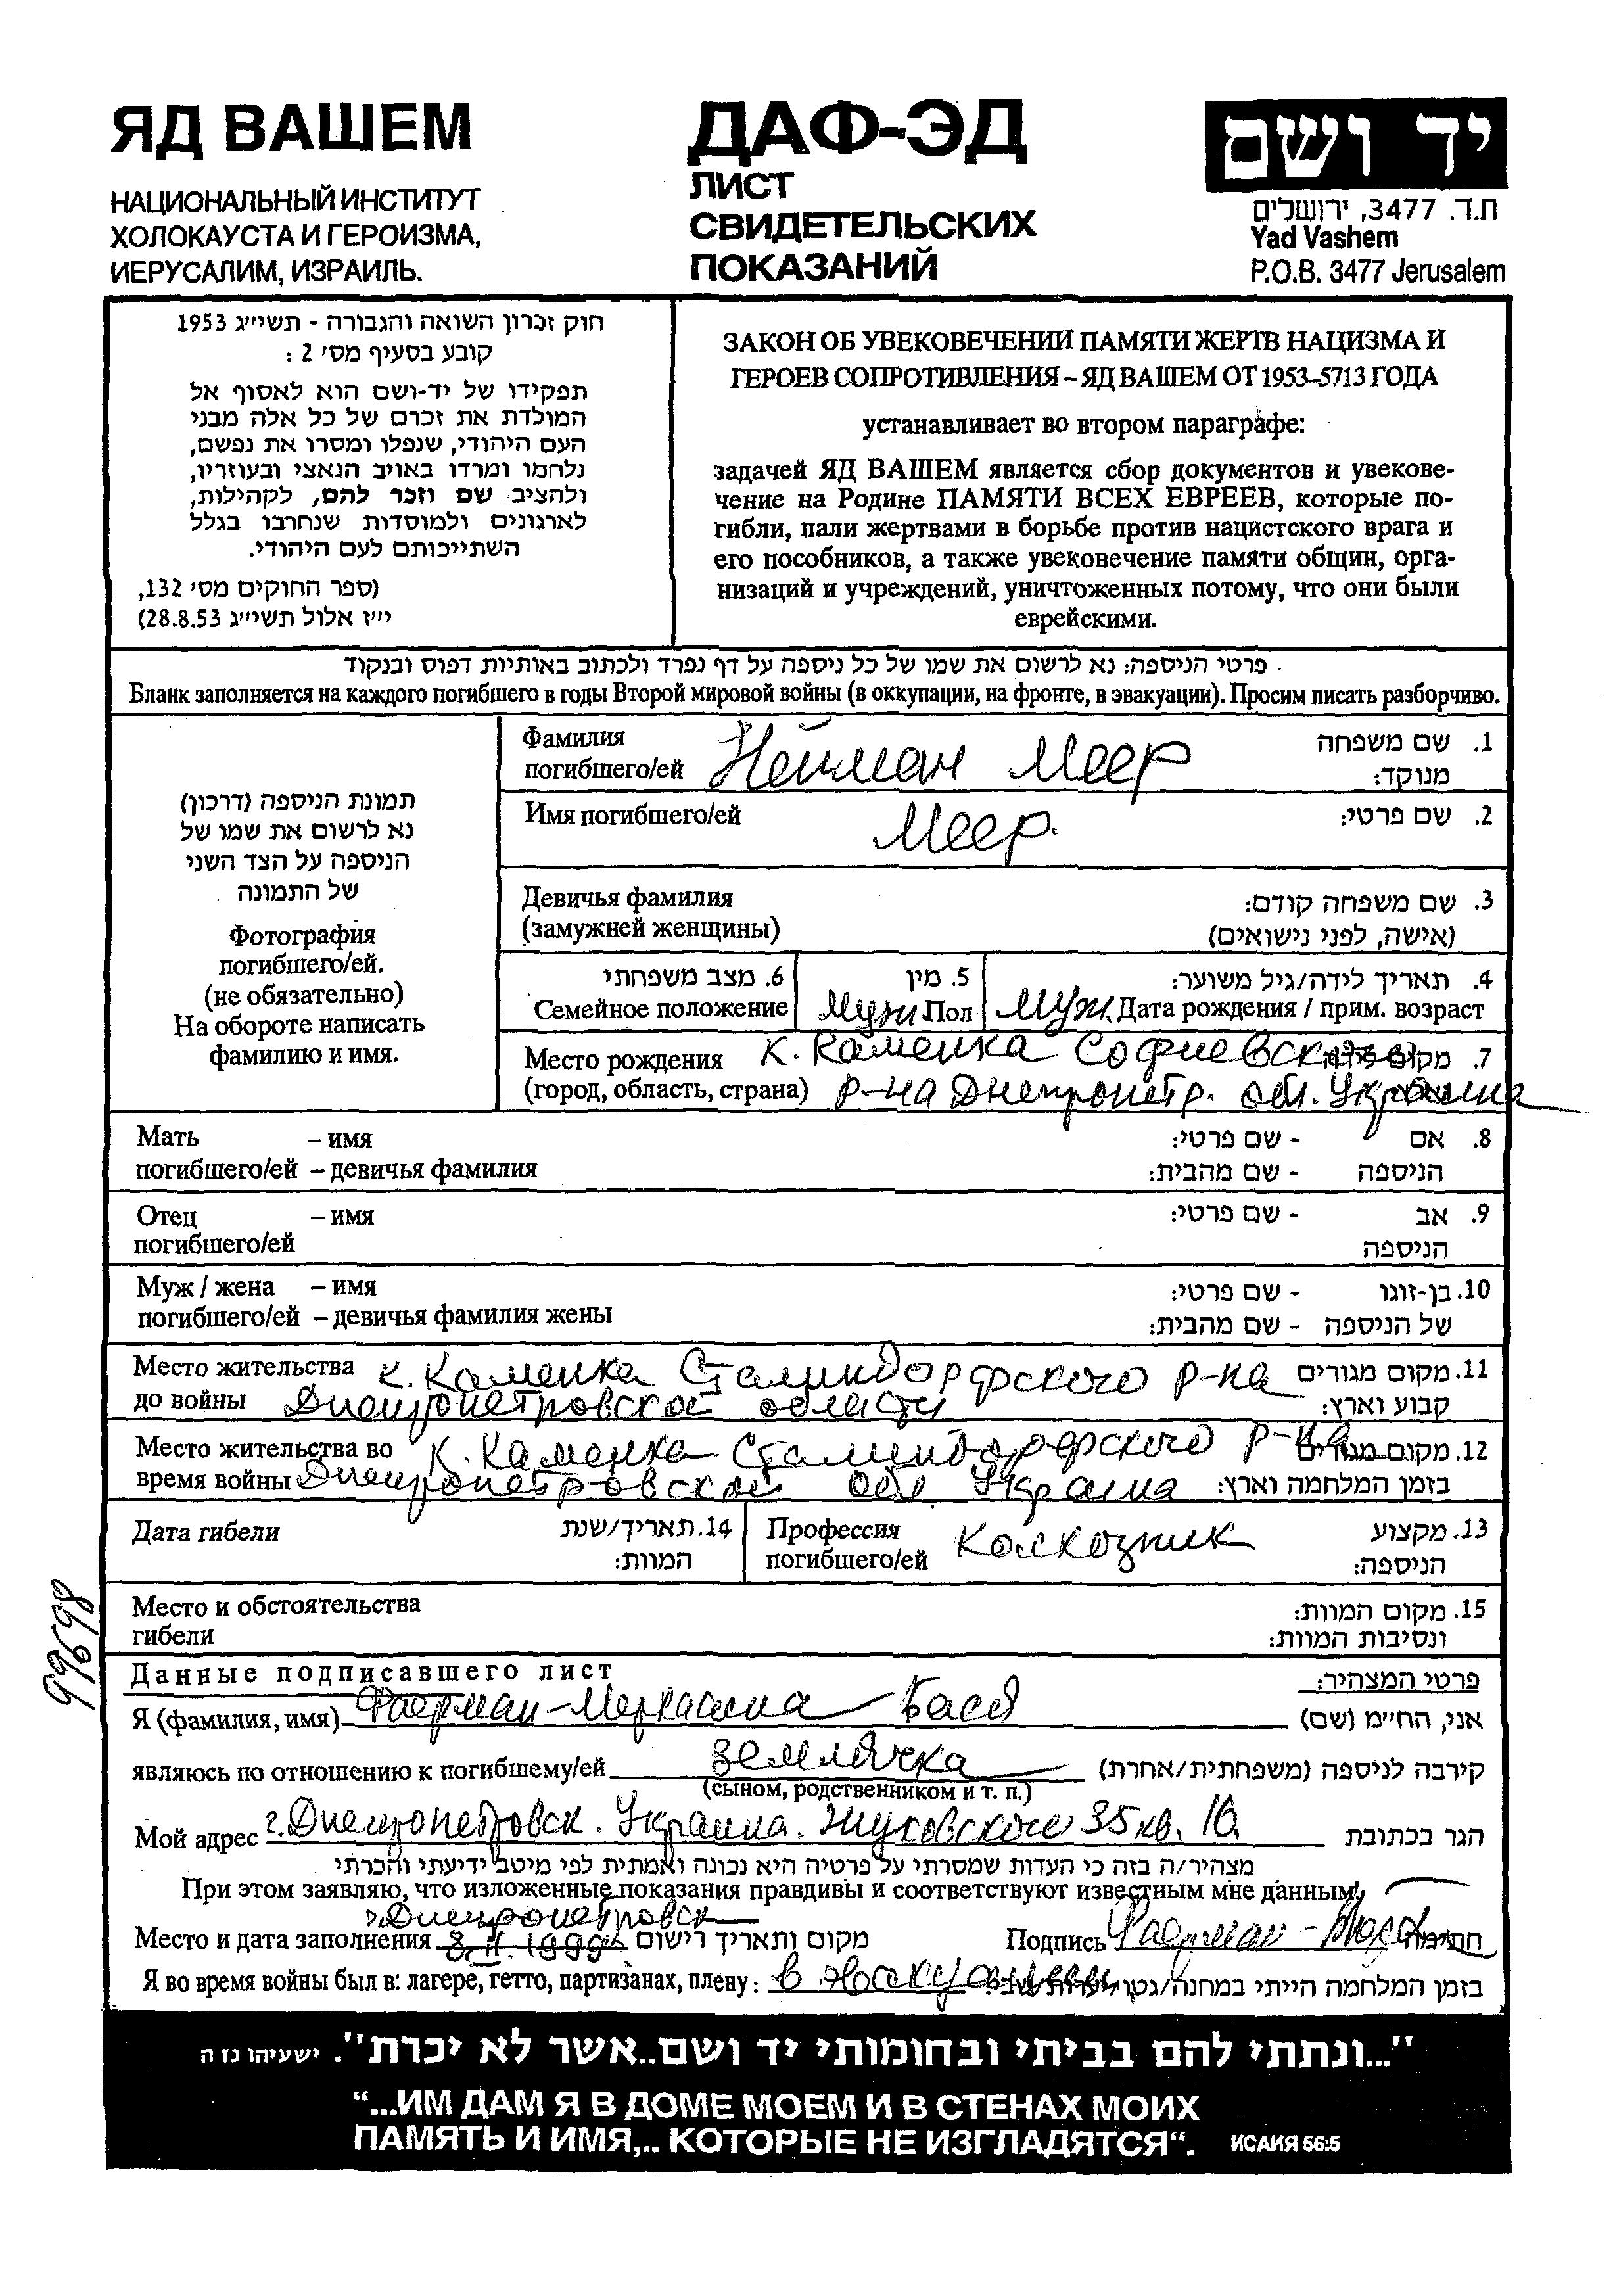 ЯД ВАШЕМ
НАЦИОНАЛЬНЫЙ ИНСТИТУТ
ХОЛОКАУСТА И ГЕРОИЗМА,
ИЕРУСАЛИМ, ИЗРАИЛЬ.
ДАФ-ЭД
ЛИСТ
СВИДЕТЕЛЬСКИХ
ПОКАЗАНИЙ
יד ושם
ת.ד. 3477, ירושלים
Yad Vashem
P.O.B. 3477 Jerusalem
חוק זכרון השואה והגבורה - תשי״ג 1953
קובע בסעיף מס׳ 2 :
תפקידו של יד-ושם הוא לאסוף אל
המולדת את זכרם של כל אלה מבני
העם היהודי, שנפלו ומסרו את נפשם,
נלחמו ומרדו באויב הנאצי ובעוזריו,
ולהציב שם וזכר להם, לקהילות,
לארגונים ולמוסדות שנחרבו בגלל
השתייכותם לעם היהודי.
(ספר החוקים מס׳ 132,
י״ז אלול תשי״ג 28.8.53)
ЗАКОН ОБ УВЕКОВЕЧЕНИИ ПАМЯТИ ЖЕРТВ НАЦИЗМА И
ГЕРОЕВ СОПРОТИВЛЕНИЯ – ЯД ВАШЕМ ОТ 1953–5713 ГОДА
устанавливает во втором параграфе:
задачей ЯД ВАШЕМ является сбор документов и увекове-
чение на Родине ПАМЯТИ ВСЕХ ЕВРЕЕВ, которые по-
гибли, пали жертвами в борьбе против нацистского врага и
его пособников, а также увековечение памяти общин, орга-
низаций и учреждений, уничтоженных потому, что они были
еврейскими.
פרטי הניספה: נא לרשום את שמו של כל ניספה על דף נפרד ולכתוב באותיות דפוס ובנקוד
Бланк заполняется на каждого погибшего в годы Второй мировой войны (в оккупации, на фронте, в эвакуации). Просим писать разборчиво.
תמונת הניספה (דרכון)
נא לרשום את שמו של
הניספה על הצד השני
של התמונה
Фотография
погибшего/ей.
(не обязательно)
На обороте написать
фамилию и имя.
Фамилия Нейман Меер 1. שם משפחה
погибшего/ей מנוקד:
Имя погибшего/ей Меер. 2. שם פרטי:
Девичья фамилия 3. שם משפחה קודם:
(замужней женщины) (אישה, לפני נישואים)
6. מצב משפחתי 5. מין 4. תאריך לידה/גיל משוער:
Семейное положение Муж Пол Муж. Дата рождения / прим. возраст
Место рождения к. Каменка Софиевского 7. מקום
(город, область, страна) р-на Днепропетр. обл. Украина
Мать – имя 8. אם - שם פרטי:
погибшего/ей – девичья фамилия הניספה - שם מהבית:
Отец – имя 9. אב - שם פרטי:
погибшего/ей הניספה
Муж / жена – имя 10. בן-זוגו - שם פרטי:
погибшего/ей – девичья фамилия жены של הניספה - שם מהבית:
Место жительства к. Каменка Сталиндорфского р-на 11. מקום מגורים
до войны Днепропетровской области קבוע וארץ:
Место жительства во к. Каменка Сталиндорфского р-на 12. מקום מגורים
время войны Днепропетровской обл. Украина בזמן המלחמה וארץ:
Дата гибели 14. תאריך/שנת
המוות:
Профессия Колхозник 13. מקצוע
погибшего/ей הניספה:
Место и обстоятельства 15. מקום המוות:
гибели ונסיבות המוות:
99698
Данные подписавшего лист פרטי המצהיר:
Я (фамилия, имя) Фаерман-Меркашина Бася אני, הח״מ (שם)
являюсь по отношению к погибшему/ей землячка קירבה לניספה (משפחתית/אחרת)
(сыном, родственником и т. п.)
Мой адрес г. Днепропетровск. Украина. Жуковского 35 кв. 10. הגר בכתובת
מצהיר/ה בזה כי העדות שמסרתי על פרטיה היא נכונה ואמתית לפי מיטב ידיעתי והכרתי
При этом заявляю, что изложенные показания правдивы и соответствуют известным мне данным.
г. Днепропетровск
Место и дата заполнения 8. II. 1999 מקום ותאריך רישום Подпись Фаерман- חתימה
Я во время войны был в: лагере, гетто, партизанах, плену: в эвакуации בזמן המלחמה הייתי במחנה/גטו
"...ונתתי להם בביתי ובחומותי יד ושם..אשר לא יכרת". ישעיהו נז ה
“...ИМ ДАМ Я В ДОМЕ МОЕМ И В СТЕНАХ МОИХ
ПАМЯТЬ И ИМЯ,.. КОТОРЫЕ НЕ ИЗГЛАДЯТСЯ“. ИСАИЯ 56:5